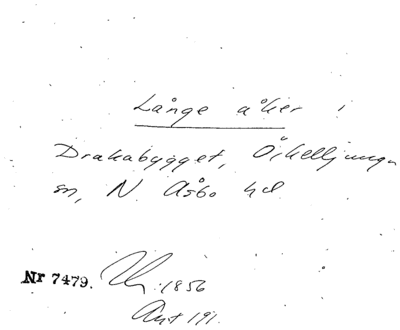 Långe åker i
Drakabygget, Örkelljunga
sn, N. Åsbo hd
Nr 7479. 1856
Avt 191.